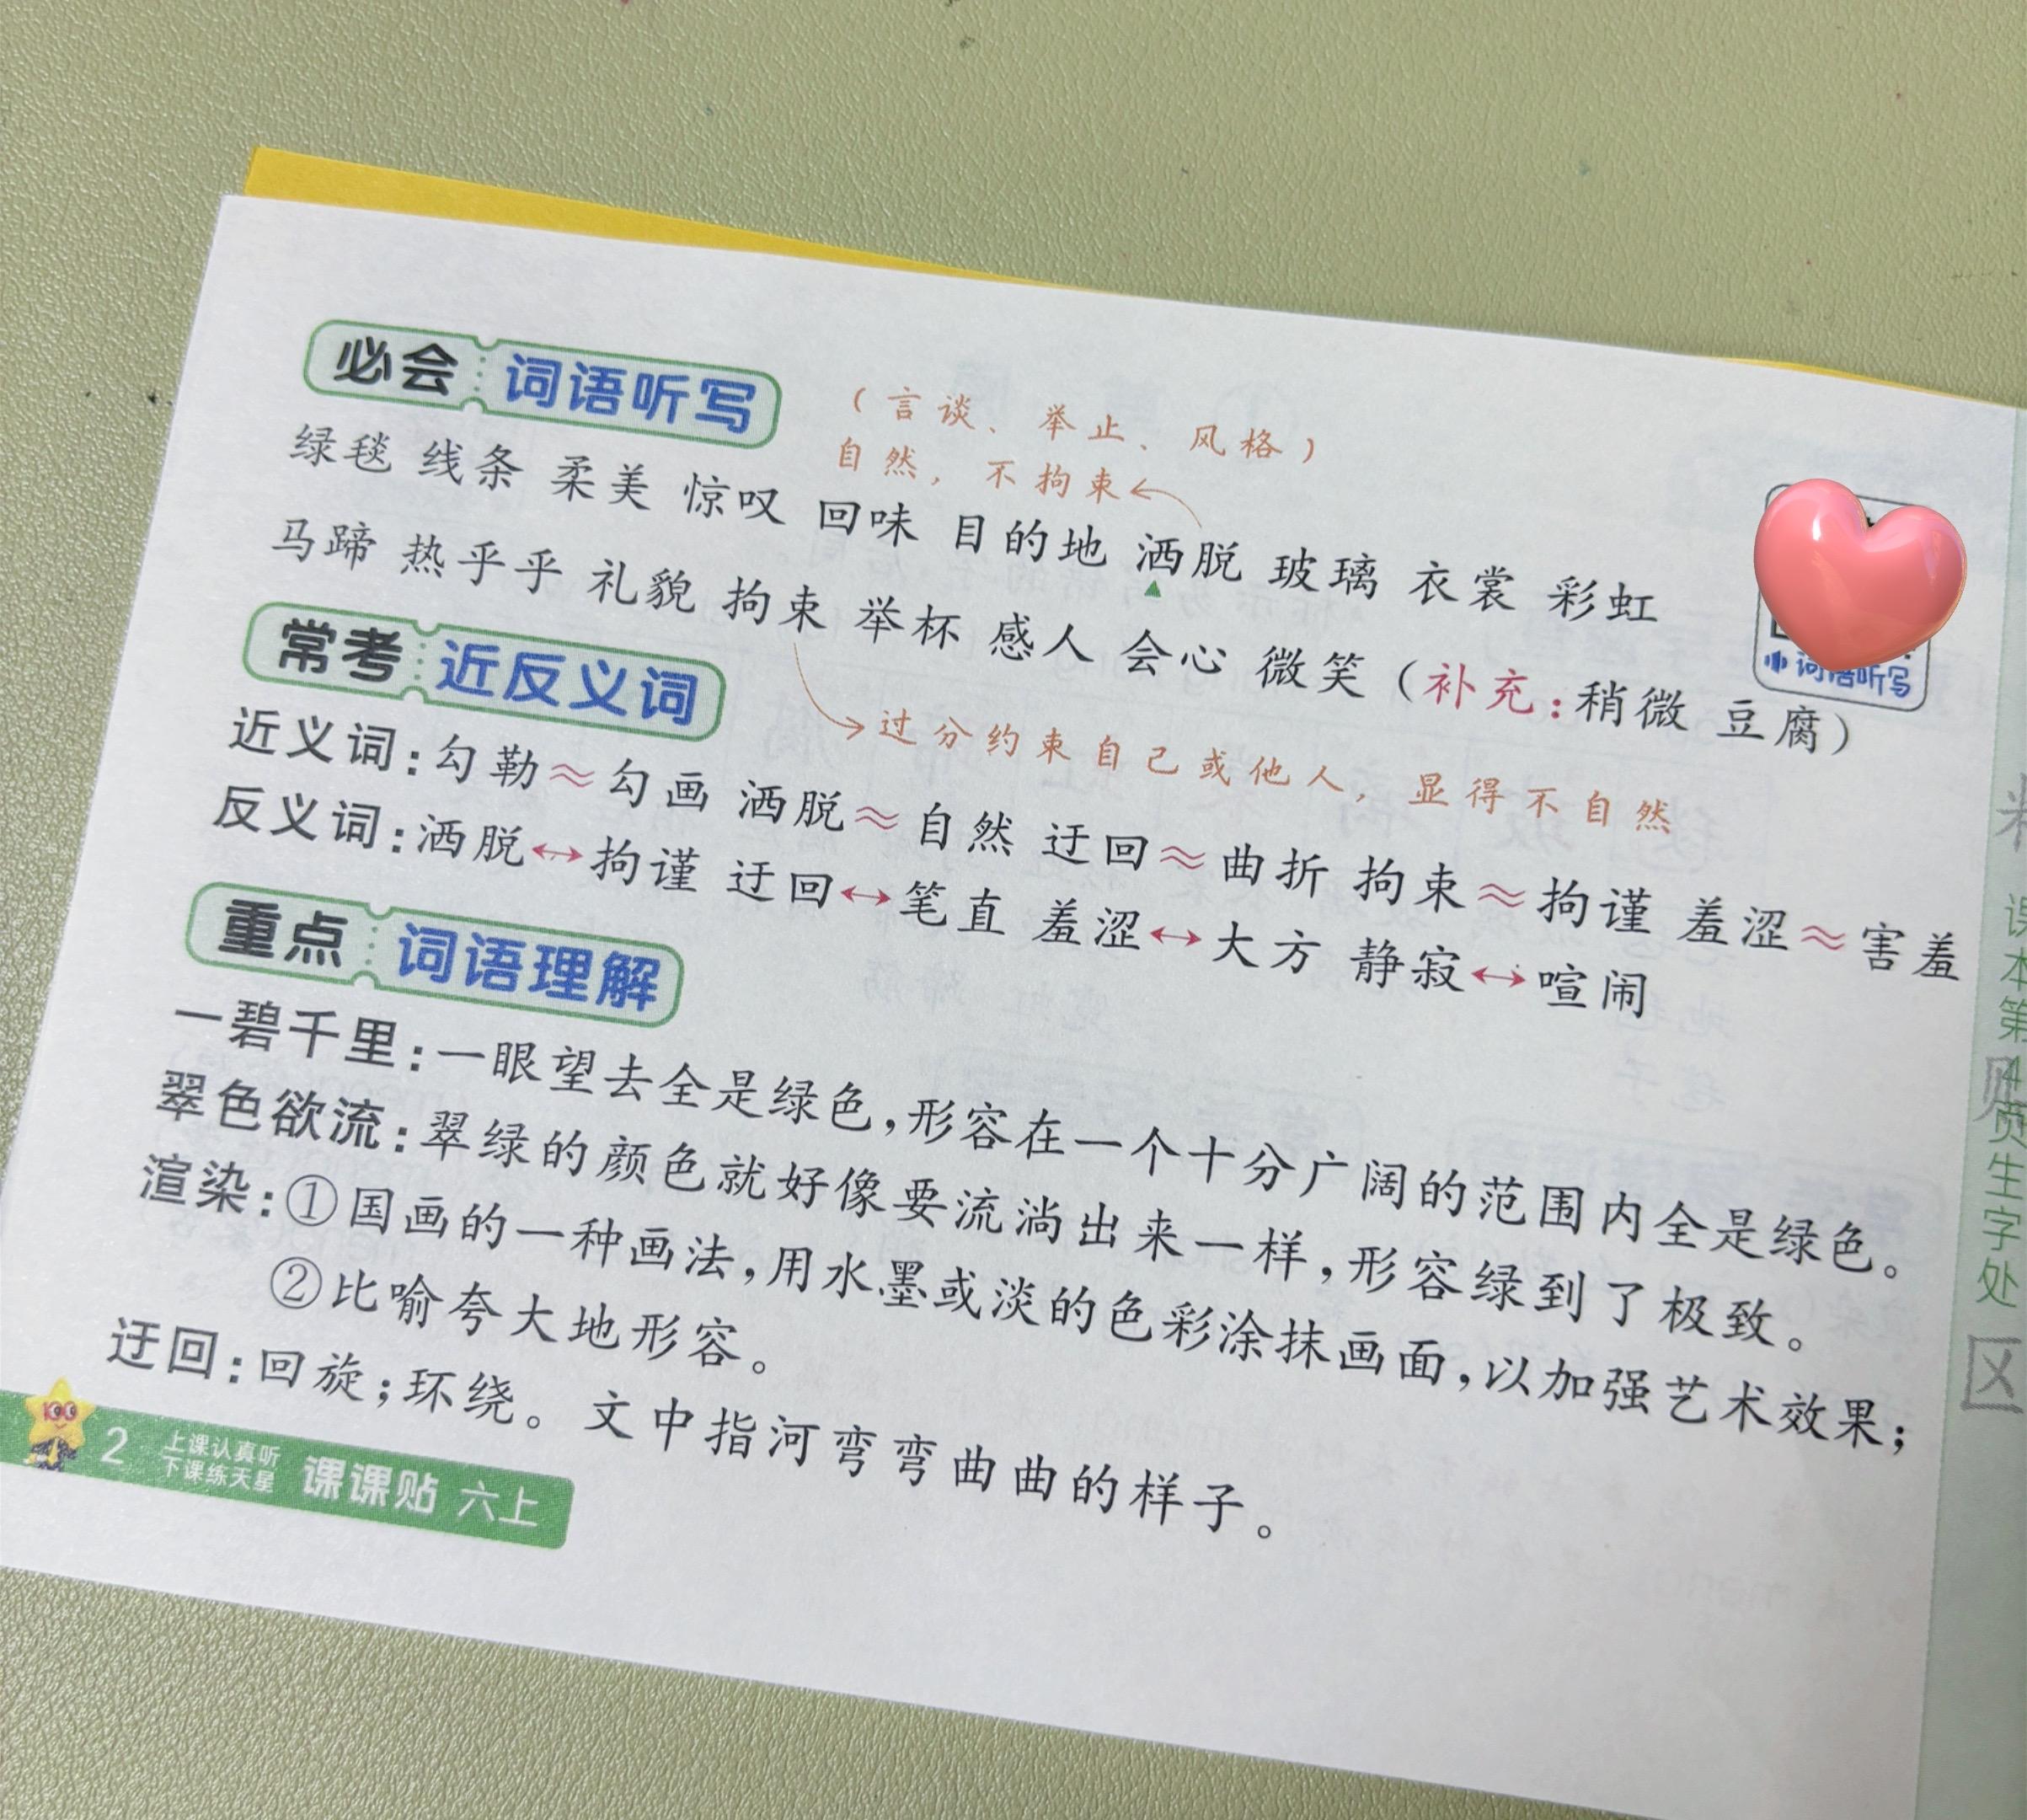 必会 词语听写
（言谈、举止、风格）
自然，不拘束
绿毯 线条 柔美 惊叹 回味 目的地 洒脱 玻璃 衣裳 彩虹
马蹄 热乎乎 礼貌 拘束 举杯 感人 会心 微笑（补充：稍微 豆腐）
词语听写
过分约束自己或他人，显得不自然
常考 近反义词
近义词：勾勒≈勾画 洒脱≈自然 迂回≈曲折 拘束≈拘谨 羞涩≈害羞
反义词：洒脱↔拘谨 迂回↔笔直 羞涩↔大方 静寂↔喧闹
重点 词语理解
一碧千里：一眼望去全是绿色，形容在一个十分广阔的范围内全是绿色。
翠色欲流：翠绿的颜色就好像要流淌出来一样，形容绿到了极致。
渲染：①国画的一种画法，用水墨或淡的色彩涂抹画面，以加强艺术效果；
②比喻夸大地形容。
迂回：回旋；环绕。文中指河弯弯曲曲的样子。
2 上课认真听
下课练天星
课课贴 六上
课本第4页生字处
贴
区